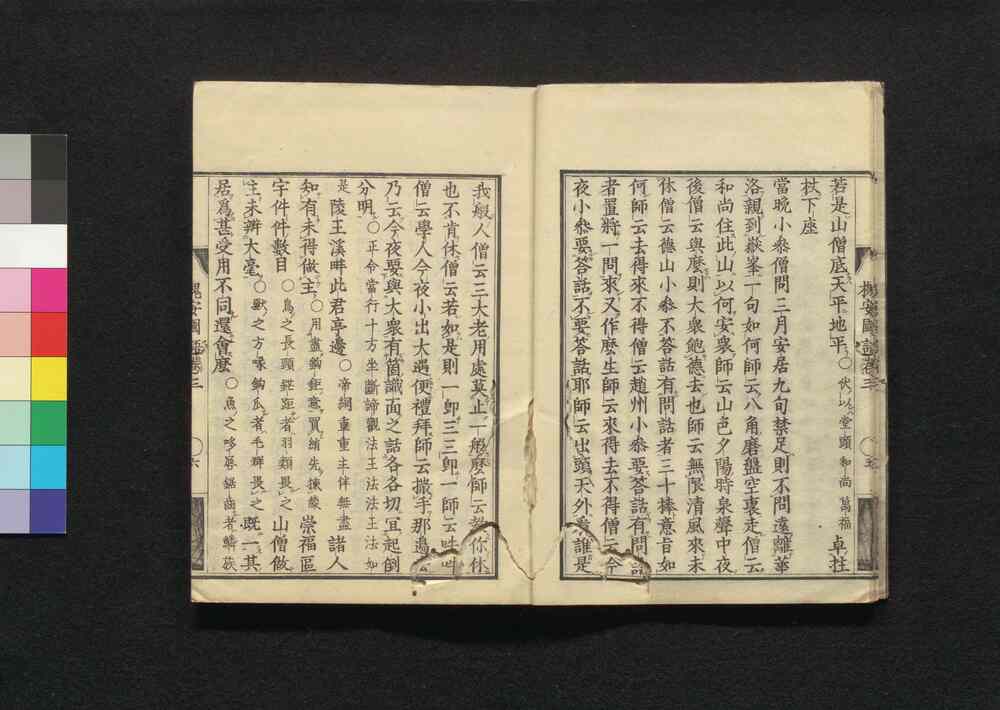 若是山僧底天平地平○伏以堂頭和尚萬福卓拄
杖下座
當晚小參僧問三月安居九旬禁足則不問遠離華
洛親到嶽峯一句如何師云八角磨盤空裏走僧云
和尚住此山以何安衆師云山色夕陽時泉聲中夜
後僧云與麼則大衆飽德去也師云無限清風來未
休僧云德山小參不答話有問話者三十棒意旨如
何師云去得來不得僧云趙州小參要答話有問話
者置將一問來又作麼生師云來得去不得僧云今
夜小參要答話不要答話耶師云出頭天外看誰是
槐安國語卷三
○五
我般人僧云三大老用處莫止一般麼師云
你休
也不肯休僧云若如是則一卽三三卽一師云吽吽
僧云學人今夜小出大遇便禮拜師云撒手那邊
乃云今夜要與大衆有箇識面之話各各切宜起倒
分明○正令當行十方坐斷諦觀法王法法王法如
是陵王溪畔此君亭邊○帝網重重主伴無盡諸人
知有未得做主○用盡鉤鉅意買
先
崇福區
宇件件數目○鳥之長頸
距者羽類畏之山僧做
主未辨大毫○獸之方喙鉤爪者毛群畏之既一其
居爲甚受用不同還會麼○魚之哆唇鋸齒者鱗族
槐安國語卷三
○六